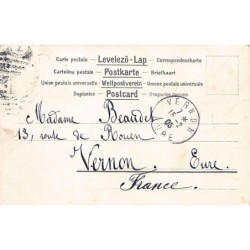 Carte postale – Levelező-Lap – Correspondenzkarte
Cartolina postale – Postkarte – Briefkaart
Union postale universelle – Weltpostverein – Unione postale universale
Dopisnice – Postcard –
VERNON
EURE
Madame Beaudet
13, route de Rouen
Vernon, Eure.
France.